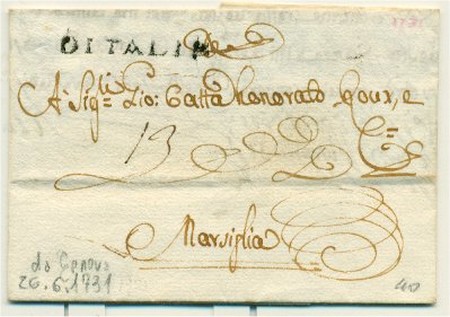 D'ITALIE
A' Sig.ri Gio: Batta Honorato Roux, e
13 C.
Marsiglia
da Genova
26.6.1731
40